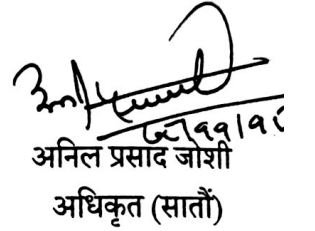 अनिल प्रसाद जोशी
अधिकृत (सातौं)